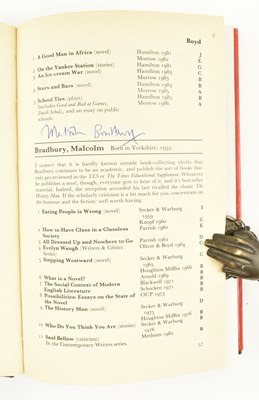 Boyd
1 A Good Man in Africa (novel) Hamilton 1981 J
Morrow 1982 E
2 On the Yankee Station (stories) Hamilton 1981 G
3 An Ice-cream War (novel) Hamilton 1982 C
Morrow 1983 B
4 Stars and Bars (novel) Hamilton 1984 B
Morrow 1985 A
5 School Ties (plays) Hamilton 1985 B
Includes Good and Bad at Games, Morrow 1986 A
Dutch Girls, and an essay on public
schools.
Malcolm Bradbury
Bradbury, Malcolm Born in Yorkshire, 1932.
I suspect that it is hardly known outside book-collecting circles that
Bradbury continues to be an academic, and publish the sort of books that
get very reviewed in the TLS or The Times Educational Supplement. Whenever
he publishes a novel, though, everyone gets to hear of it, and it's best-seller
material. Indeed, the reception accorded his last rivalled the classic The
History Man. If the scholarly criticism is a bit much for you, concentrate on
the humour and the fiction: well worth having.
1 Eating People is Wrong (novel) Secker & Warburg I
1959
Knopf 1960 G
2 How to Have Class in a Classless Parrish 1960 E
Society
3 All Dressed Up and Nowhere to Go Parrish 1962
4 Evelyn Waugh (Writers & Critics Oliver & Boyd 1964
Series)
5 Stepping Westward (novel) Secker & Warburg
1965
Houghton Mifflin 1966
6 What is a Novel? Arnold 1969
7 The Social Context of Modern Blackwell 1971
English Literature Schocken 1971
8 Possibilities: Essays on the State of OUP 1973
the Novel
9 The History Man (novel) Secker & Warburg
1975
Houghton Mifflin 1976 B
10 Who Do You Think You Are (stories) Secker & Warburg
1976
11 Saul Bellow (criticism) Methuen 1982
In the Contemporary Writers series.
57